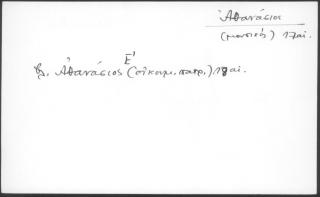 Ἀθανάσιος
(μοναχός) 17 αἰ.
Ε΄
βλ. Ἀθανάσιος (οἰκουμ. πατρ.) 18 αἰ.